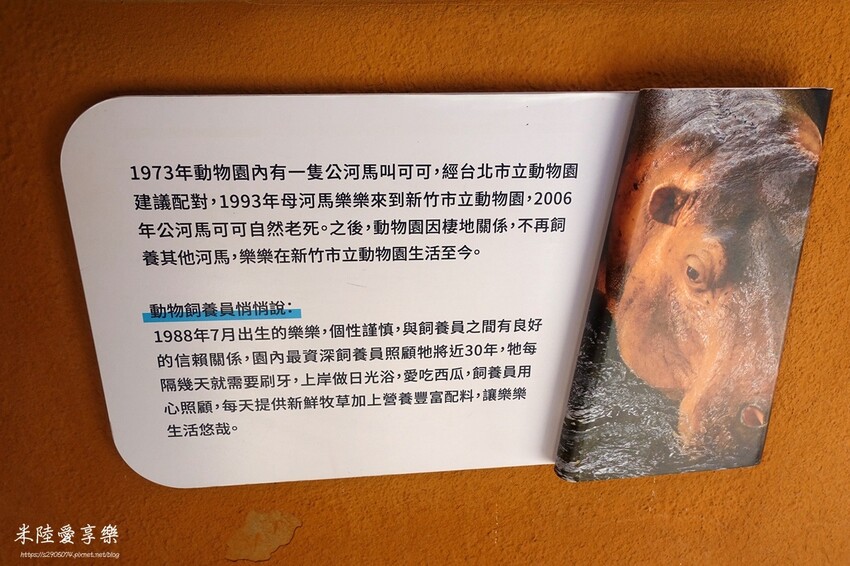 1973年動物園內有一隻公河馬叫可可，經台北市立動物園
建議配對，1993年母河馬樂樂來到新竹市立動物園，2006
年公河馬可可自然老死。之後，動物園因棲地關係，不再飼
養其他河馬，樂樂在新竹市立動物園生活至今。
動物飼養員悄悄說：
1988年7月出生的樂樂，個性謹慎，與飼養員之間有良好
的信賴關係，園內最資深飼養員照顧牠將近30年，牠每
隔幾天就需要刷牙，上岸做日光浴，愛吃西瓜，飼養員用
心照顧，每天提供新鮮牧草加上營養豐富配料，讓樂樂
生活悠哉。
米陸愛享樂
https://s2906074.pixnet.net/blog